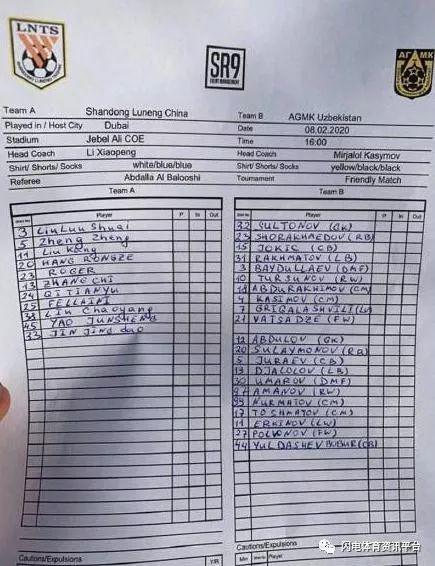 LNTS
SR9
EVENT MANAGEMENT
АГМК
Team A Shandong Luneng China
Team B AGMK Uzbekistan
Played in / Host City Dubai
Date 08.02.2020
Stadium Jebel Ali COE
Time 16:00
Head Coach Li Xiaopeng
Head Coach Mirjalol Kasymov
Shirt/ Shorts/ Socks white/blue/blue
Shirt / Shorts / Socks yellow/black/black
Referee Abdalla Al Balooshi
Tournament Friendly Match
Team A
Player P In Out
3 Liu Luu Shuai
5 Zheng Zheng
11 Liu
20 WANG RONGZE
23 ROGER
13 ZHANG CHI
24 QI TIANYU
25 FELLAINI
38 Lin Chaoyang
45 YAO JUNSHENG
33 JIN JING dao
Cautions/Expulsions
Y/R
Team B
Player P In Out
32 SULTONOV (GK)
23 SHORAKHMEDOV (RB)
15 JOKIC (CB)
31 RAKHMATOV (LB)
3 BAYDULLAEV (DMF)
10 TURSUNOV (RW)
18 ABDURAKHIMOV (CM)
4 KASIMOV (CM)
7 GRIGALASHVILI (LW)
21 VATSADZE (FW)
12 ABDULOV (GK)
20 SULAYMONOV (RB)
5 JURAEV (CB)
19 DJALOLOV (LB)
30 UMAROV (DMF)
27 AMANOV (RW)
99 NURMATOV (CM)
17 TOSHMATOV (CM)
11 ERKINOV (LW)
77 POLVONOV (FW)
44 YULDASHEV BUBUR (CB)
Cautions/Expulsions
Min Shirt No Player
闪电体育资讯平台